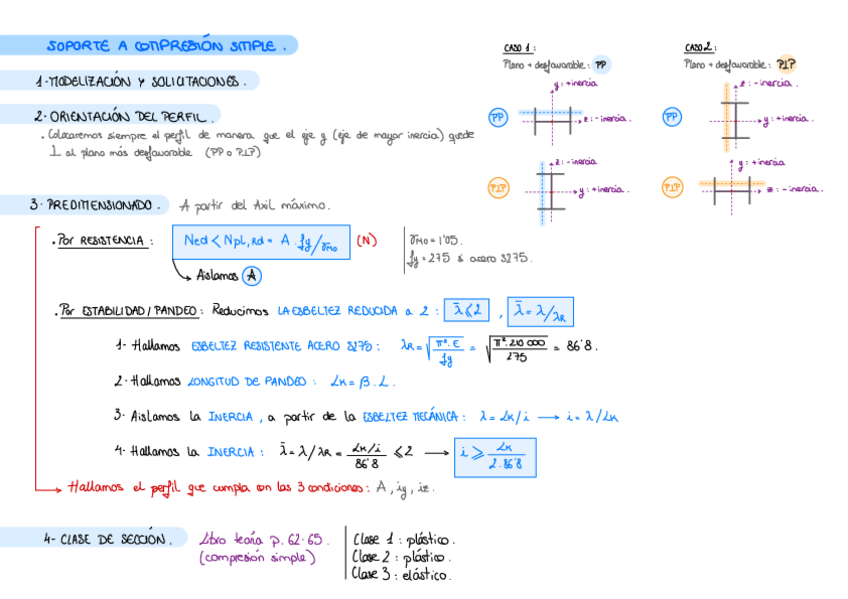 SOPORTE A COMPRESIÓN SIMPLE.
1. MODELIZACIÓN Y SOLICITACIONES.
2. ORIENTACIÓN DEL PERFIL.
. Colocaremos siempre el perfil de manera que el eje y (eje de mayor inercia) quede
⊥ al plano más desfavorable (PP o P⊥P)
CASO 1:
Plano + desfavorable: PP
y: +inercia
PP
z: -inercia.
z: -inercia
P⊥P
y: +inercia.
CASO 2:
Plano + desfavorable: P⊥P
z: -inercia.
PP
y: +inercia.
y: +inercia
P⊥P
z: -inercia.
3. PREDIMENSIONADO. A partir del Axil máximo.
. Por RESISTENCIA: Ned < Npl,Rd = A . fy/γM0 (N)
γM0 = 1'05.
fy = 275 si acero S275.
Aislamos A
. Por ESTABILIDAD / PANDEO: Reducimos LA ESBELTEZ REDUCIDA a 2: λ̄ ⩽ 2, λ̄ = λ/λR
1- Hallamos ESBELTEZ RESISTENTE ACERO S275: λR = √(π². E / fy) = √(π². 210 000 / 275) = 86'8.
2. Hallamos LONGITUD DE PANDEO: LK = β . L.
3. Aislamos la INERCIA, a partir de la ESBELTEZ MECÁNICA: λ = LK/i → i = λ/LK
4. Hallamos la INERCIA: λ̄ = λ/λR = (LK/i) / 86'8 ⩽ 2 → i ⩾ LK / 2.86'8
Hallamos el perfil que cumpla con las 3 condiciones: A, iy, iz.
4- CLASE DE SECCIÓN. Libro teoría p. 62-65.
(compresión simple)
Clase 1: plástico.
Clase 2: plástico.
Clase 3: elástico.